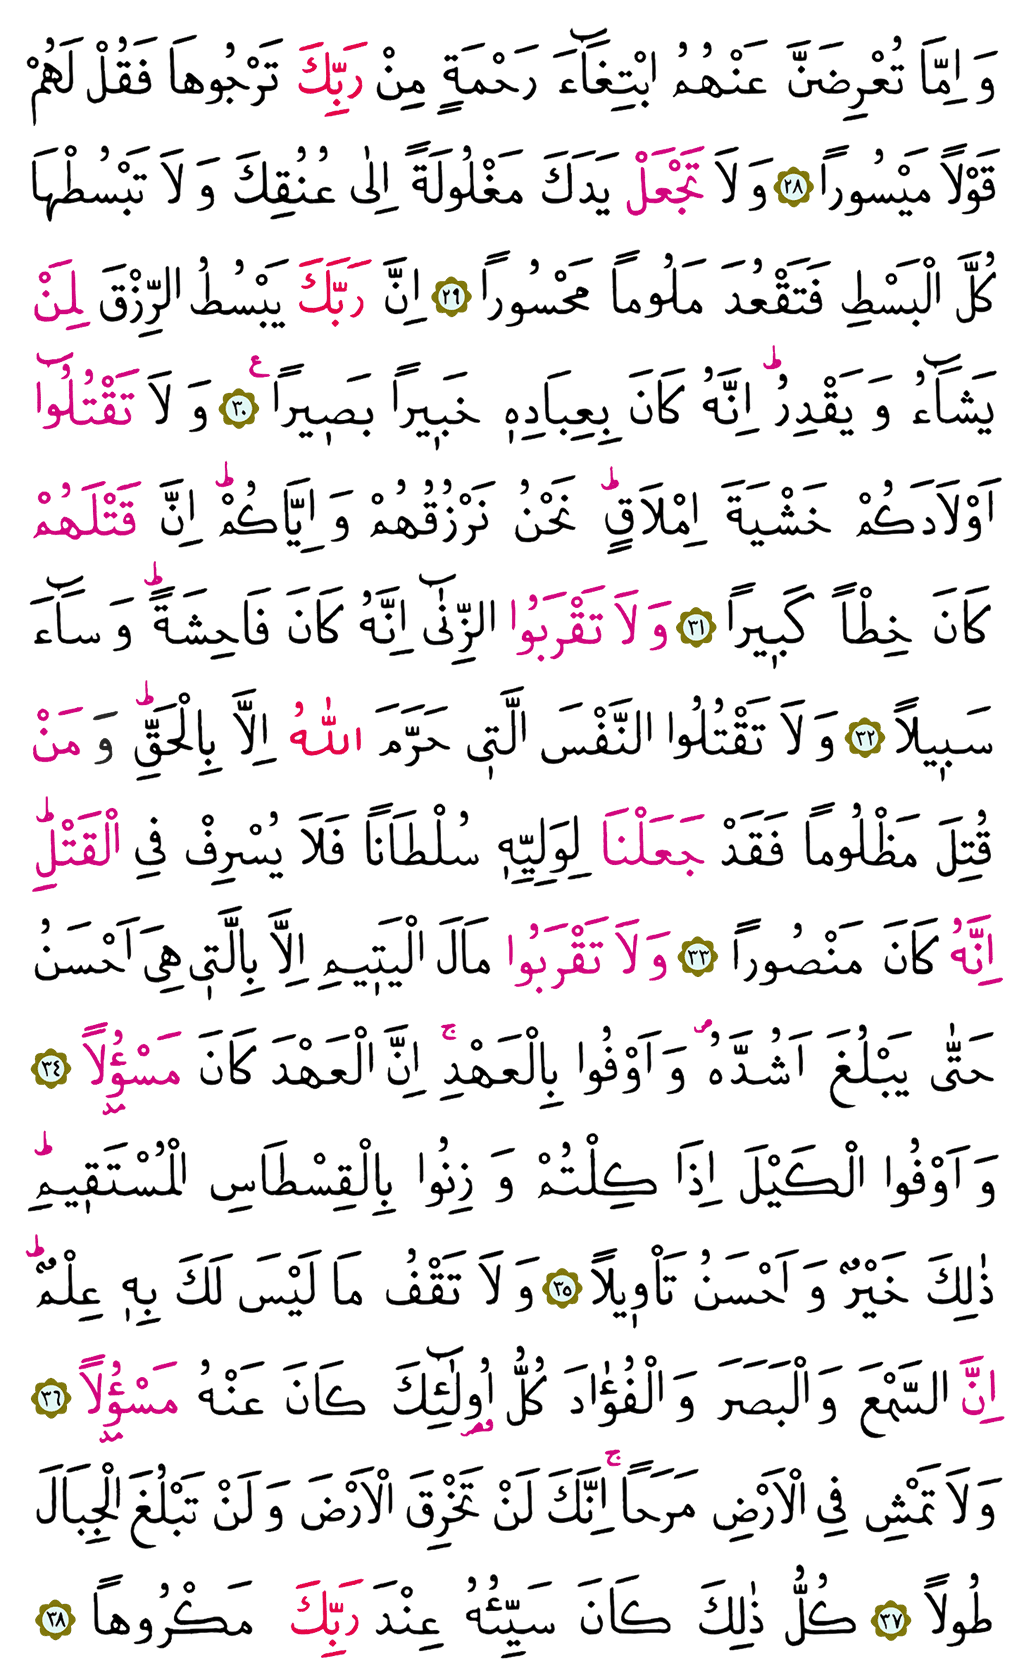 وَ اِمَّا تُعْرِضَنَّ عَنْهُمُ ابْتِغَٓاءَ رَحْمَةٍ مِنْ رَبِّكَ تَرْجُوهَا فَقُلْ لَهُمْ
قَوْلاً مَيْسُوراً ﴿٢٨﴾ وَ لَا تَجْعَلْ يَدَكَ مَغْلُولَةً اِلٰى عُنُقِكَ وَ لَا تَبْسُطْهَا
كُلَّ الْبَسْطِ فَتَقْعُدَ مَلُوماً مَحْسُوراً ﴿٢٩﴾ اِنَّ رَبَّكَ يَبْسُطُ الرِّزْقَ لِمَنْ
يَشَٓاءُ وَ يَقْدِرُ ؕ اِنَّهُ كَانَ بِعِبَادِهٖ خَبٖيراً بَصٖيراً ع ﴿٣٠﴾ وَ لَا تَقْتُلُٓوا
اَوْلَادَكُمْ خَشْيَةَ اِمْلَاقٍ ؕ نَحْنُ نَرْزُقُهُمْ وَ اِيَّاكُمْ ؕ اِنَّ قَتْلَهُمْ
كَانَ خِطْاً كَبٖيراً ﴿٣١﴾ وَ لَا تَقْرَبُوا الزِّنٰٓى اِنَّهُ كَانَ فَاحِشَةً ؕ وَ سَٓاءَ
سَبٖيلاً ﴿٣٢﴾ وَ لَا تَقْتُلُوا النَّفْسَ الَّتٖى حَرَّمَ اللّٰهُ اِلَّا بِالْحَقِّ ؕ وَ مَنْ
قُتِلَ مَظْلُوماً فَقَدْ جَعَلْنَا لِوَلِيِّهٖ سُلْطَاناً فَلَا يُسْرِفْ فِى الْقَتْلِ ؕ
اِنَّهُ كَانَ مَنْصُوراً ﴿٣٣﴾ وَ لَا تَقْرَبُوا مَالَ الْيَتٖيمِ اِلَّا بِالَّتٖى هِىَ اَحْسَنُ
حَتّٰى يَبْلُغَ اَشُدَّهُ ص وَ اَوْفُوا بِالْعَهْدِ ۚ اِنَّ الْعَهْدَ كَانَ مَسْؤُلاً مد ﴿٣٤﴾
وَ اَوْفُوا الْكَيْلَ اِذَا كِلْتُمْ وَ زِنُوا بِالْقِسْطَاسِ الْمُسْتَقٖيمِ ؕ
ذٰلِكَ خَيْرٌ وَ اَحْسَنُ تَأْوٖيلاً ﴿٣٥﴾ وَ لَا تَقْفُ مَا لَيْسَ لَكَ بِهٖ عِلْمٌ ؕ
اِنَّ السَّمْعَ وَ الْبَصَرَ وَ الْفُؤٰادَ كُلُّ اُولٰٓئِكَ قصر كَانَ عَنْهُ مَسْؤُلاً مد ﴿٣٦﴾
وَ لَا تَمْشِ فِى الْاَرْضِ مَرَحاً ۚ اِنَّكَ لَنْ تَخْرِقَ الْاَرْضَ وَ لَنْ تَبْلُغَ الْجِبَالَ
طُولاً ﴿٣٧﴾ كُلُّ ذٰلِكَ كَانَ سَيِّئُهُ عِنْدَ رَبِّكَ مَكْرُوهاً ﴿٣٨﴾